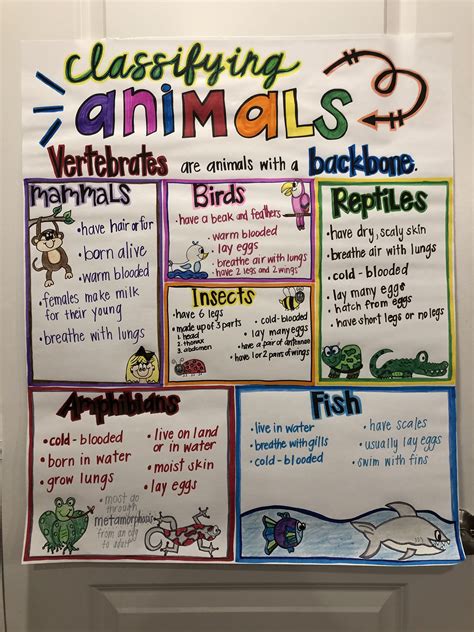 classifying
animals
Vertebrates are animals with a backbone.
mammals
• have hair or fur
• born alive
• warm blooded
• females make milk
for their young
• breathe with lungs
Birds
• have a beak and feathers
• warm blooded
• lay eggs
• breathe air with lungs
• have 2 legs and 2 wings
Insects
• have 6 legs
• made up of 3 parts
1. head
2. thorax
3. abdomen
• cold-blooded
• lay many eggs
• have a pair of antennae
• have 1 or 2 pairs of wings
Reptiles
• have dry, scaly skin
• breathe air with lungs
• cold-blooded
• lay many eggs
• hatch from eggs
• have short legs or no legs
Amphibians
• cold-blooded
• born in water
• grow lungs
• most go
through
metamorphosis
from an egg
to adult
• live on land
or in water
• moist skin
• lay eggs
Fish
• live in water
• breathe with gills
• cold-blooded
• have scales
• usually lay eggs
• swim with fins